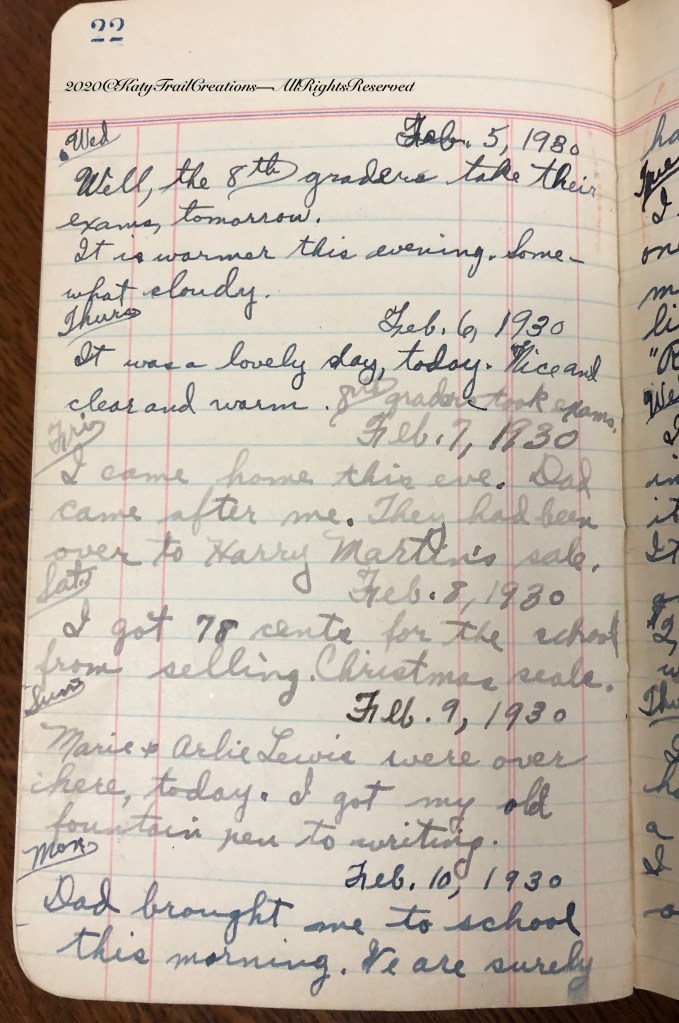 22
2020@KatyTrailCreations—AllRightsReserved
Wed
Feb. 5, 1930
Well, the 8th graders take their
exams, tomorrow.
It is warmer this evening. Some-
what cloudy.
Thurs
Feb. 6, 1930
It was a lovely day, today. Nice and
clear and warm. 8th graders took exams.
Fri
Feb. 7, 1930
I came home this eve. Dad
came after me. They had been
over to Harry Martin's sale.
Sat
Feb. 8, 1930
I got 78 cents for the school
from selling Christmas seals.
Sun
Feb. 9, 1930
Marie & Arlie Lewis were over
here, today. I got my old
fountain pen to writing.
Mon
Feb. 10, 1930
Dad brought me to school
this morning. We are surely